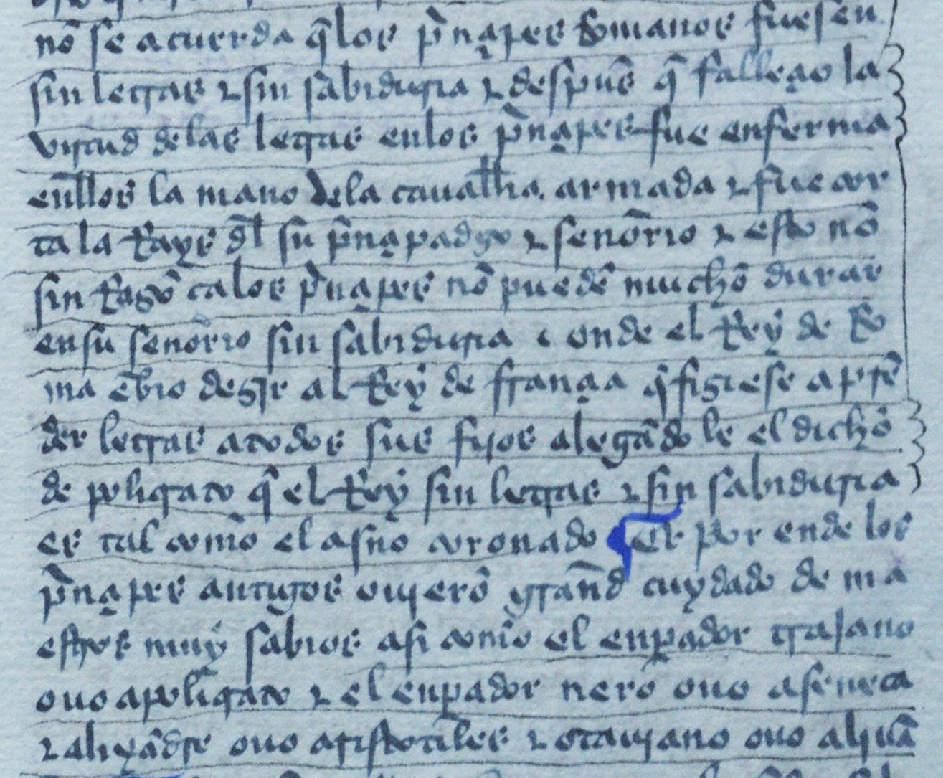 nõ se acuerda q̃ los p̃nçipes Romanos fuesen
sin letras ⁊ sin sabiduria ⁊ despues q̃ falleçio la
virtud de las letras en los p̃nçipes fue enferma
enllos la mano de la cavallia armada ⁊ fue cor
ta la Rays dl̃ su p̃nçipadgo ⁊ señorio ⁊ esto nõ
sin Razõ ca los p̃nçipes nõ puedẽ mucho durar
en su señorio sin sabiduria onde el Rey de Ro
ma ẽbio dezir al Rey de françia q̃ fiziese aprẽ
der letras a todos sus fijos alegãdo le el dicho
de poliçrato q̃ el Rey sin letras ⁊ sin sabiduria
es tal como el asno coronado ¶ Et por ende los
p̃nçipes antigos ovierõ grãnd cuydado de ma
estros muy sabios asi como el enpador trajano
ovo a poliçrato ⁊ el enpador nero ovo a seneca
⁊ alixãdre ovo aristotiles ⁊ otaviano ovo